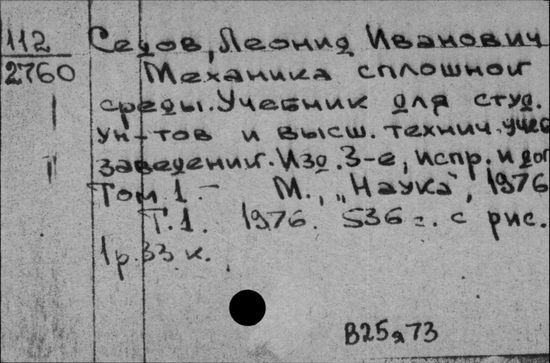 112
2760
Седов, Леонид Иванович
Механика сплошной
среды. Учебник для студ.
ун-тов и высш. технич. учеб
заведений. Изд. 3-е, испр. и доп
Том 1.- М., „Наука", 1976
Т.1. 1976. 536 с. с рис.
1р.33 к.
В25я73